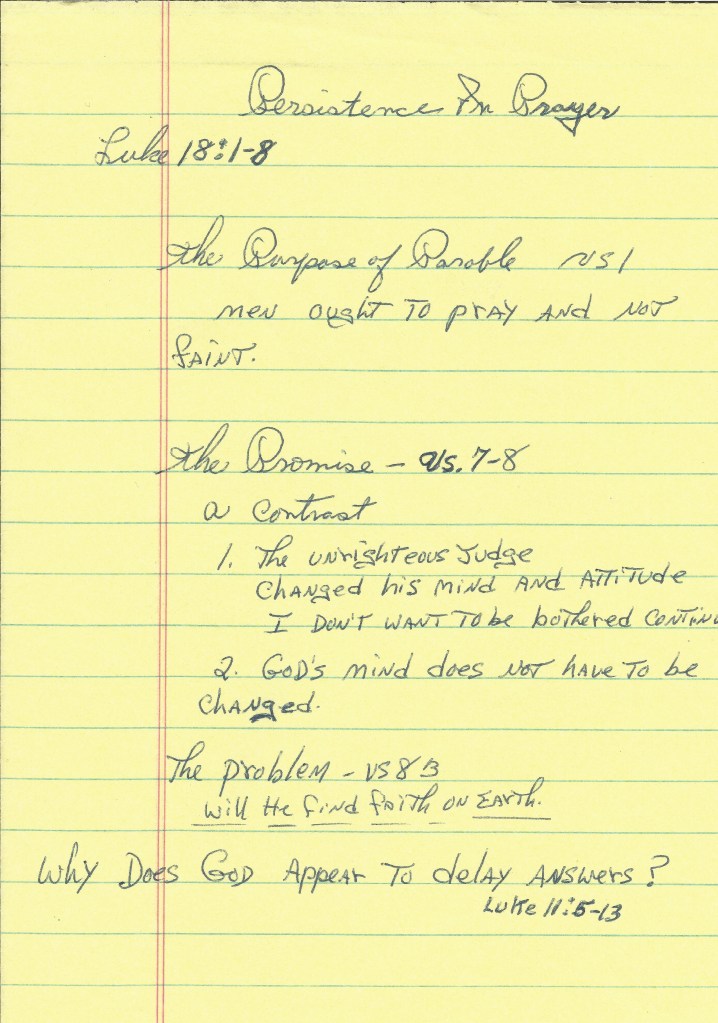 Persistence In Prayer
Luke 18:1-8
the Purpose of Parable vs 1
men ought to pray and not
faint.
the Promise - vs. 7-8
a contrast
1. The unrighteous Judge
changed his mind and attitude
I don't want to be bothered continu
2. God's mind does not have to be
changed.
The problem - vs 8 B
will He find faith on Earth.
Why Does God Appear to delay answers?
Luke 11:5-13